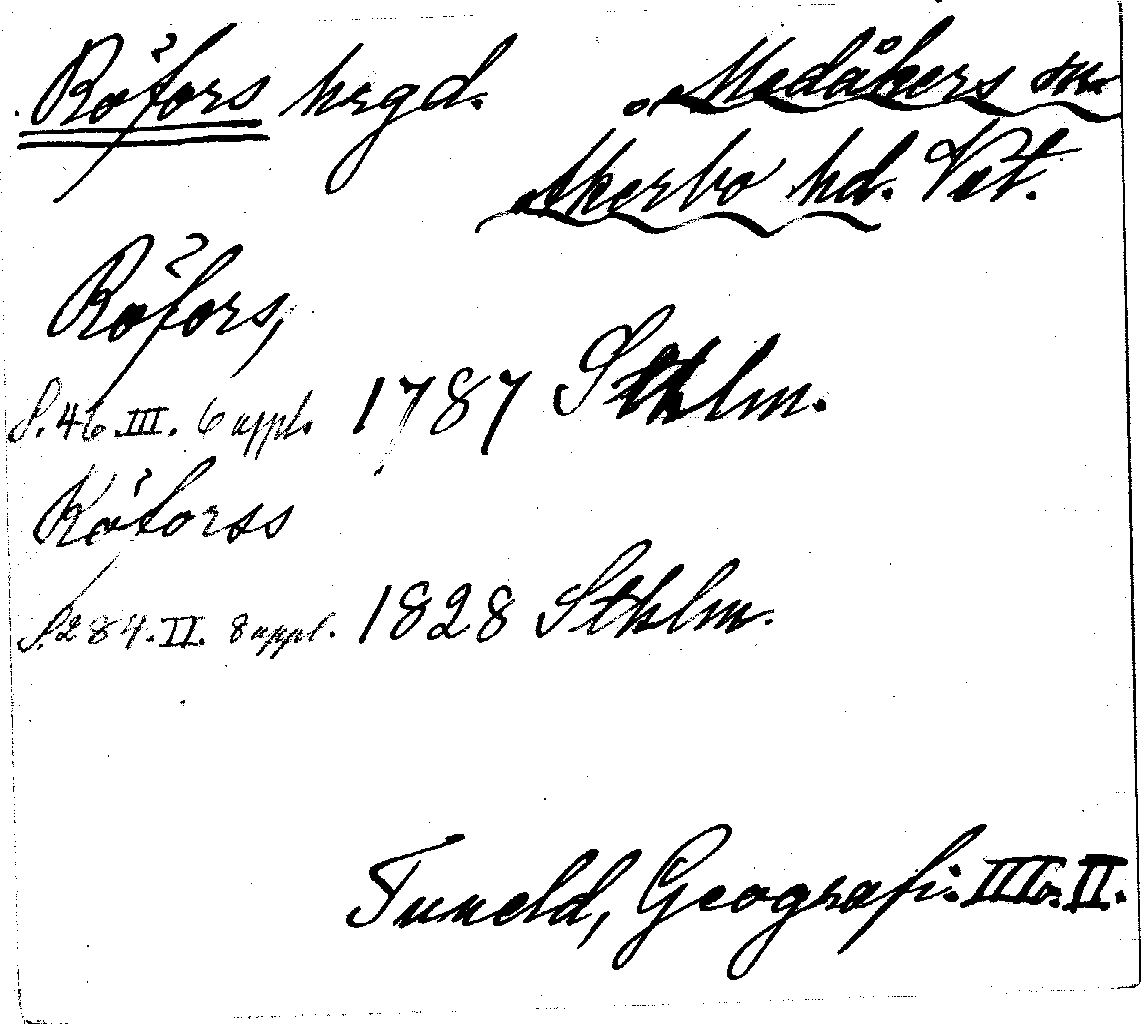 Röfors hrgd. Medåkers sn.
Åkerbo hd. Vst.
Röfors,
S. 46. III. 6 uppl. 1787 Sthlm.
Röforss
S. 284. II. 8 uppl. 1828 Sthlm.
Tuneld, Geografi. III o. II.